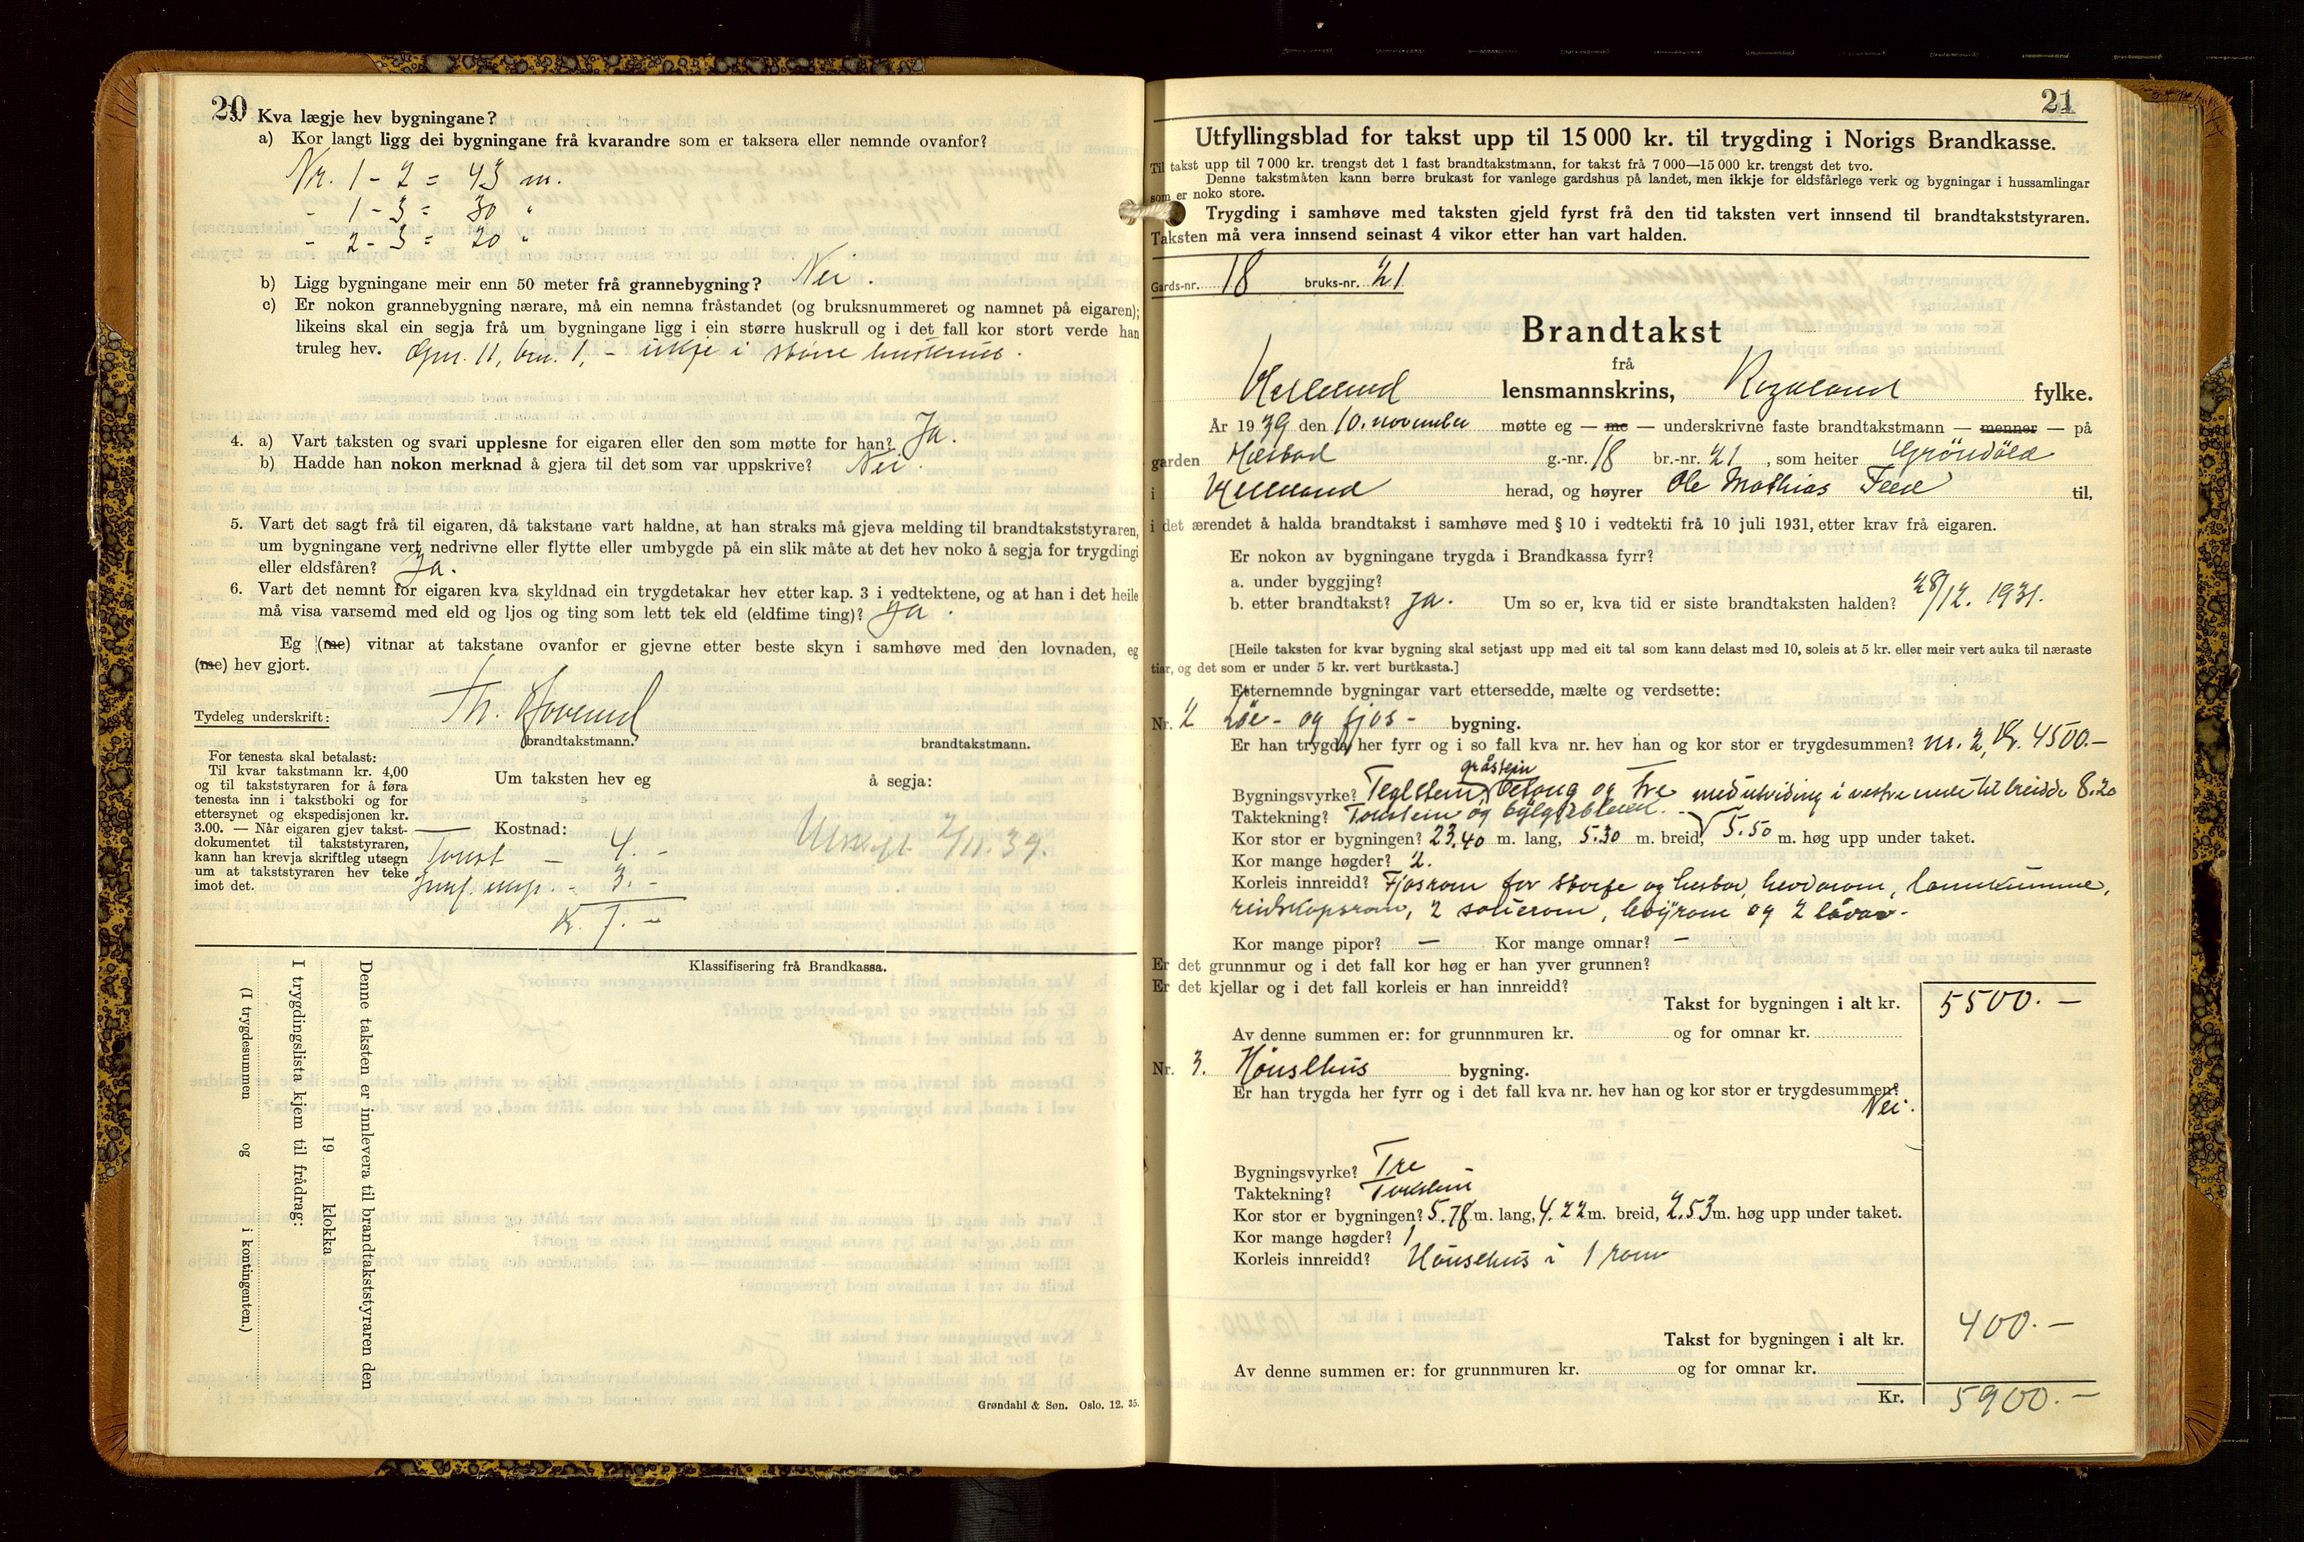 20
3. Kva lægje hev bygningane?
a) Kor langt ligg dei bygningane frå kvarandre som er taksera eller nemnde ovanfor?
Nr. 1 - 2 = 43 m.
- 1 - 3 = 30 "
- 2 - 3 = 20 "
b) Ligg bygningane meir enn 50 meter frå grannebygning? Nei.
c) Er nokon grannebygning nærare, må ein nemna fråstandet (og bruksnummeret og namnet på eigaren);
likeins skal ein segja frå um bygningane ligg i ein større huskrull og i det fall kor stort verde han
truleg hev. Gnr. 11, bnr. 1, - ikkje i større huskrull.
4. a) Vart taksten og svari upplesne for eigaren eller den som møtte for han? Ja.
b) Hadde han nokon merknad å gjera til det som var uppskrive? Nei.
5. Vart det sagt frå til eigaren, då takstane vart haldne, at han straks må gjeva melding til brandtakststyraren,
um bygningane vert nedrivne eller flytte eller umbygde på ein slik måte at det hev noko å segja for trygdingi
eller eldsfåren? Ja.
6. Vart det nemnt for eigaren kva skyldnad ein trygdetakar hev etter kap. 3 i vedtektene, og at han i det heile
må visa varsemd med eld og ljos og ting som lett tek eld (eldfime ting)? Ja.
Eg (me) vitnar at takstane ovanfor er gjevne etter beste skyn i samhøve med den lovnaden, eg
(me) hev gjort.
Tydeleg underskrift: Th. Hovland
brandtakstmann. brandtakstmann.
For tenesta skal betalast:
Til kvar takstmann kr. 4,00
og til takststyraren for å føra
tenesta inn i takstboki og for
ettersynet og ekspedisjonen kr.
3.00. — Når eigaren gjev takst-
dokumentet til takststyraren,
kann han krevja skriftleg utsegn
um at takststyraren hev teke
imot det.
Um taksten hev eg å segja:
Kostnad:
Takst - 4.-
- 3.-
Kr. 7.-
Utskrift 2/11.39.
Klassifisering frå Brandkassa.
Denne taksten er innlevera til brandtakststyraren den
19 klokka
I trygdingslista kjem til frådrag:
(I trygdesummen og i kontingenten.)
Grøndahl & Søn. Oslo. 12. 35.
21
Utfyllingsblad for takst upp til 15 000 kr. til trygding i Norigs Brandkasse.
Til takst upp til 7 000 kr. trengst det 1 fast brandtakstmann, for takst frå 7 000—15 000 kr. trengst det tvo.
Denne takstmåten kann berre brukast for vanlege gardshus på landet, men ikkje for eldsfårlege verk og bygningar i hussamlingar
som er noko store.
Trygding i samhøve med taksten gjeld fyrst frå den tid taksten vert innsend til brandtakststyraren.
Taksten må vera innsend seinast 4 vikor etter han vart halden.
Gards-nr. 18 bruks-nr. 21
Brandtakst
frå
Helleland lensmannskrins, Rogaland fylke.
År 1939 den 10. november møtte eg — me — underskrivne faste brandtakstmann — menner — på
garden g.-nr. 18 br.-nr. 21, som heiter
i Helleland herad, og høyrer Ole Mathias til,
i det ærendet å halda brandtakst i samhøve med § 10 i vedtekti frå 10 juli 1931, etter krav frå eigaren.
Er nokon av bygningane trygda i Brandkassa fyrr?
a. under byggjing?
b. etter brandtakst? Ja. Um so er, kva tid er siste brandtaksten halden? 28/12. 1931.
[Heile taksten for kvar bygning skal setjast upp med eit tal som kann delast med 10, soleis at 5 kr. eller meir vert auka til næraste
tiar, og det som er under 5 kr. vert burtkasta.]
Etternemnde bygningar vart ettersedde, mælte og verdsette:
Nr. 2 Løe- og fjos- bygning.
Er han trygda her fyrr og i so fall kva nr. hev han og kor stor er trygdesummen? nr. 2, Kr. 4500.-
gråstein
Bygningsvyrke? Teglstein, betong og tre med utviding i vestre ende til breidde 8.20
Taktekning? Takstein og bylgjeblekk
Kor stor er bygningen? 23,40 m. lang, 5.30 m. breid, 5.50 m. høg upp under taket.
Kor mange høgder? 2.
Korleis innreidd? Fjosrom for storfe og hestar, landkumme,
reidskapsrom, 2 rom, høyrom og 2 låvar.
Kor mange pipor? — Kor mange omnar? —
Er det grunnmur og i det fall kor høg er han yver grunnen?
Er det kjellar og i det fall korleis er han innreidd?
Takst for bygningen i alt kr. 5500.-
Av denne summen er: for grunnmuren kr. og for omnar kr.
Nr. 3. Hønsehus bygning.
Er han trygda her fyrr og i det fall kva nr. hev han og kor stor er trygdesummen?
Nei.
Bygningsvyrke? Tre
Taktekning? Takstein
Kor stor er bygningen? 5.78 m. lang, 4.22 m. breid, 2.53 m. høg upp under taket.
Kor mange høgder? 1
Korleis innreidd? Hønsehus i 1 rom
Takst for bygningen i alt kr. 400.-
Av denne summen er: for grunnmuren kr. og for omnar kr.
Kr. 5900.-